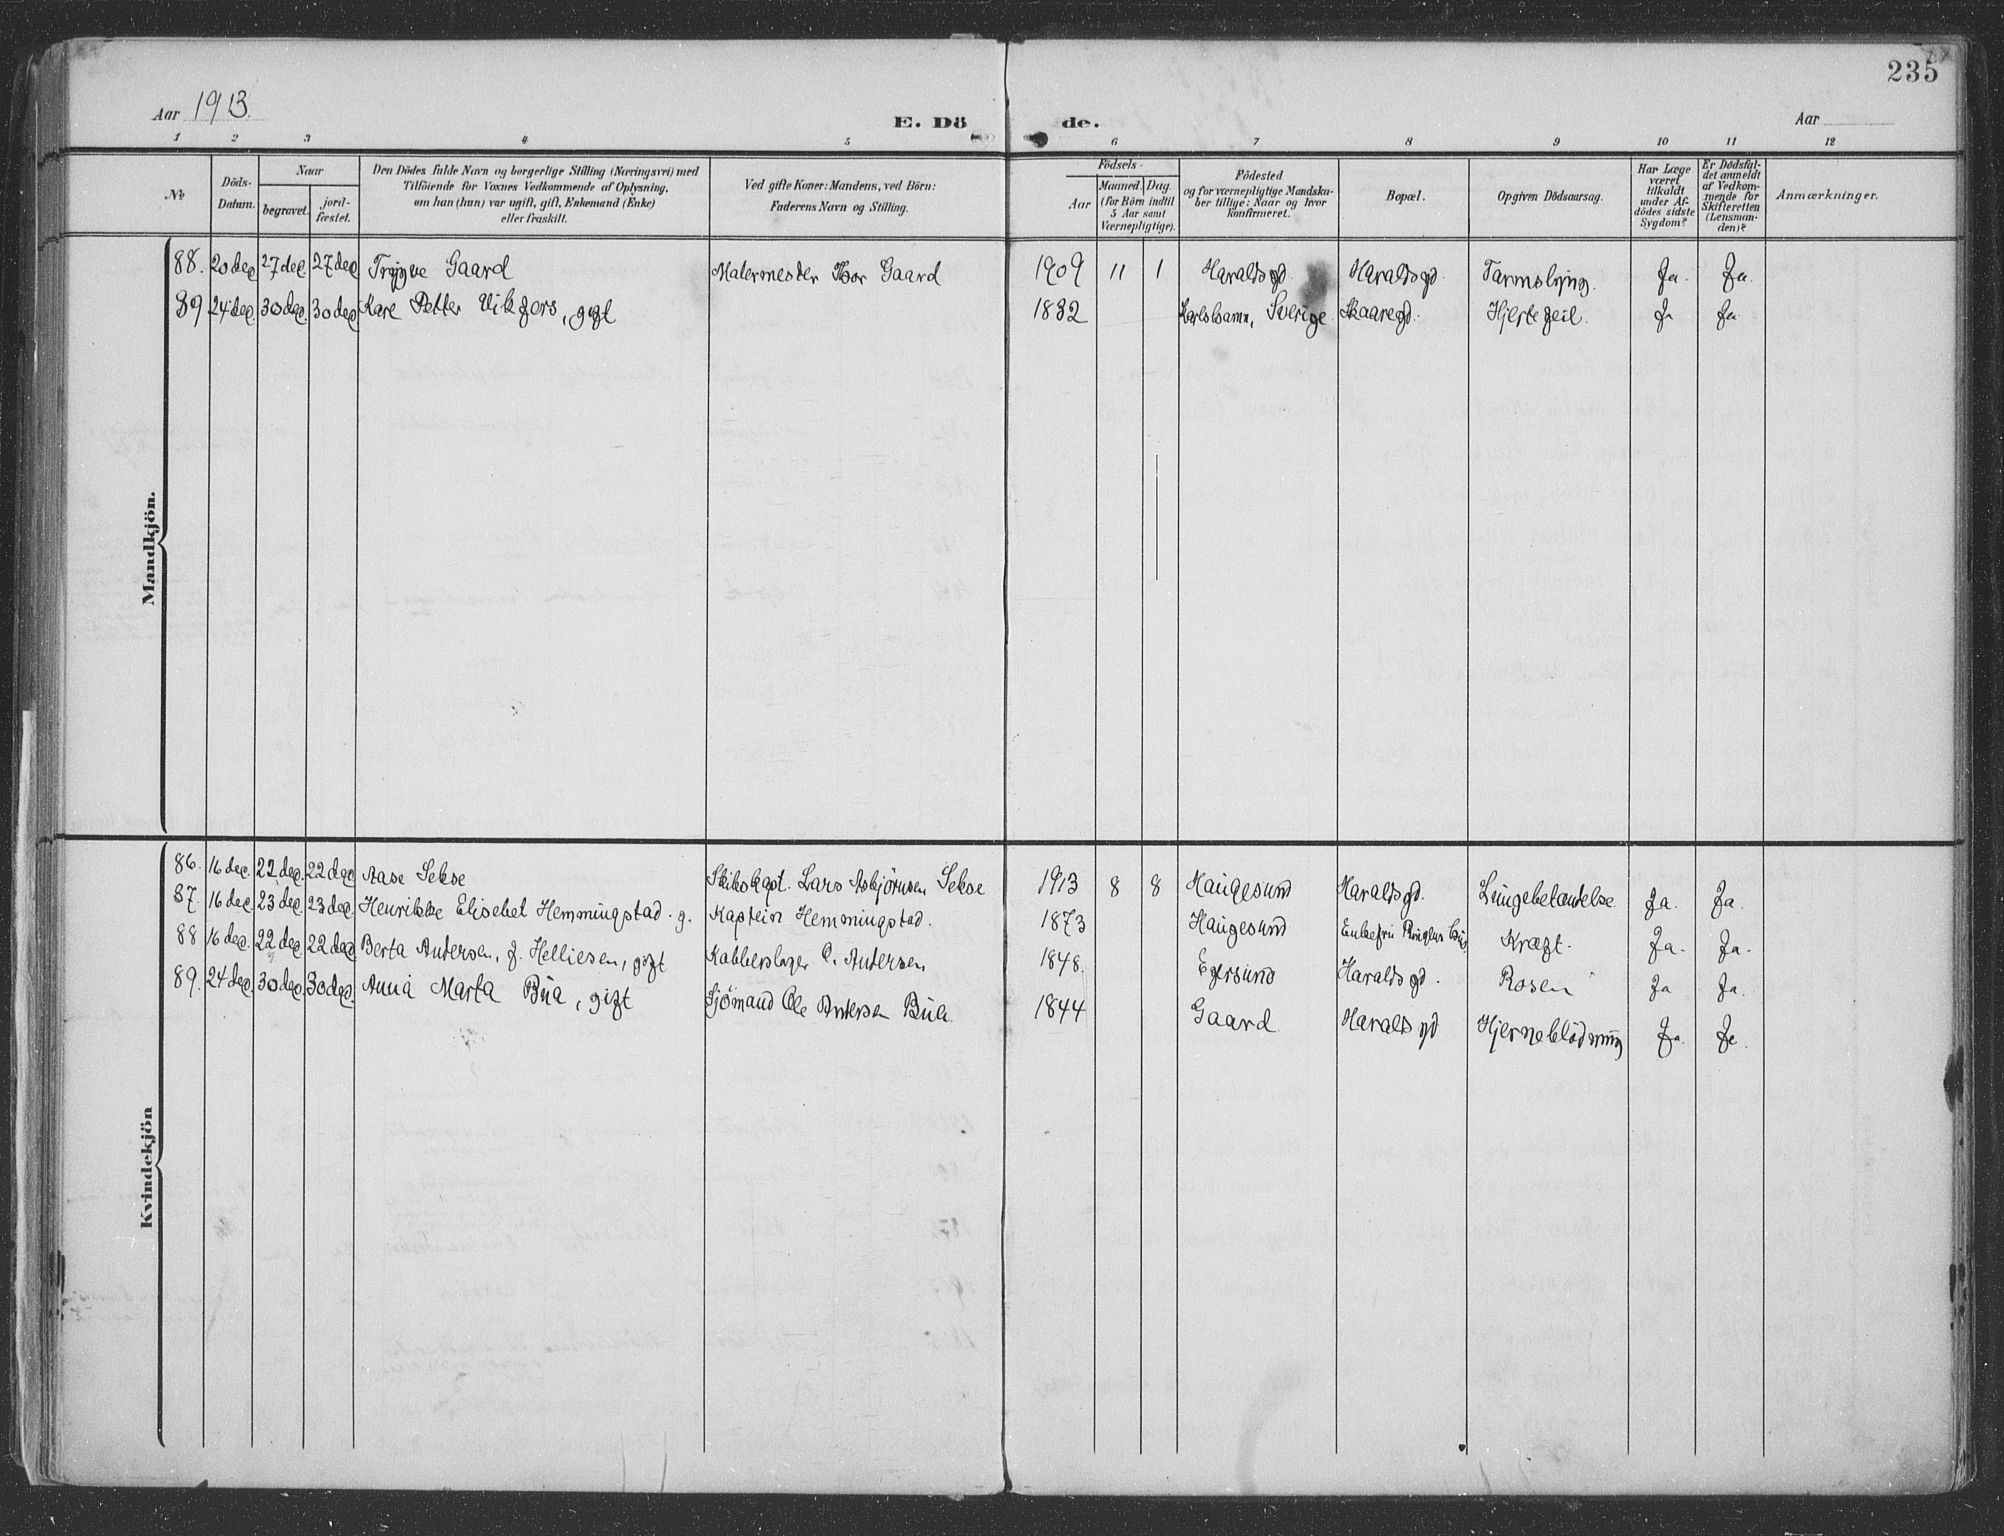 235
Aar 1913.
E. Döde.
Aar
1 2 3 4 5 6 7 8 9 10 11 12
№
Döds-Datum.
Naar
begravet.
jord-fæstet.
Den Dödes fulde Navn og borgerlige Stilling (Næringsvei) med
Tilföiende for Voxnes Vedkommende af Oplysning,
om han (hun) var ugift, gift, Enkemand (Enke)
eller fraskilt.
Ved gifte Koner: Mandens, ved Börn:
Faderens Navn og Stilling.
Födsels-
Aar
Maaned. Dag.
(for Börn indtil
5 Aar samt
Værnepligtige).
Födested
og for værnepligtige Mandska-
ber tillige: Naar og hvor
konfirmeret.
Bopæl.
Opgiven Dödsaarsag.
Har Læge
været
tilkaldt
under Af-
dödes sidste
Sygdom?
Er Dödsfal-
det anmeldt
af Vedkom-
mende for
Skifteretten
(Lensman-
den)?
Anmærkninger.
Mandkjön.
88. 20 dec 27 dec 27 dec Trygve Gaard Malermester Thor Gaard 1909 11 1 Haraldsgd. Haraldsgd. Tarmslyng. Ja. Ja.
89 24 dec. 30 dec. 30 dec. Kare Petter Vikfors, gift 1832 Karlshamn, Sverige. Skaaregd. Hjertefeil. Ja
Kvindekjön
86. 16 dec. 22 dec. 22 dec Aase Sekse Lars Asbjørnsen Sekse 1913 8 8 Haugesund Haraldsgd. Lungebetændelse. Ja. Ja.
87. 16 dec. 23 dec. 23 dec. Henrikke Elisebet Hemmingstad. g. Kaptein Hemmingstad. 1873 Haugesund Kræft. Ja. Ja.
88 16 dec. 22 dec. 22 dec Berta Andersen, f. Helliesen, gift Andersen 1848. Egersund Haraldsgd. Rosen Ja Ja.
89. 24 dec. 30 dec. 30 dec. Anna Marta Bua, gift Sjømand Ole Andersen Bua. 1844 Gaard Haraldsgd Hjerneblødning Ja. Ja.